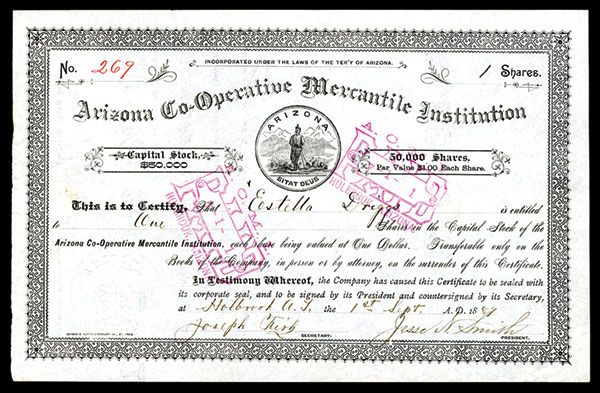 INCORPORATED UNDER THE LAWS OF THE TER'Y OF ARIZONA.
No. 269
1 Shares.
Arizona Co-Operative Mercantile Institution
ARIZONA
DITAT DEUS
Capital Stock,
$50,000
50,000 Shares,
Par Value $1.00 Each Share.
This is to Certify, That Estella Driggs is entitled
to One Shares in the Capital Stock of the
Arizona Co-Operative Mercantile Institution, each share being valued at One Dollar. Transferable only on the
Books of the Company, in person or by attorney, on the surrender of this Certificate.
In Testimony Whereof, the Company has caused this Certificate to be sealed with
its corporate seal, and to be signed by its President and countersigned by its Secretary,
at Holbrook A.T. the 1st Sept. A.D. 188
Joseph
Jesse N. Smith
SECRETARY.
PRESIDENT.
A. C. M. I.
PAID
A. C. M. I.
PAID